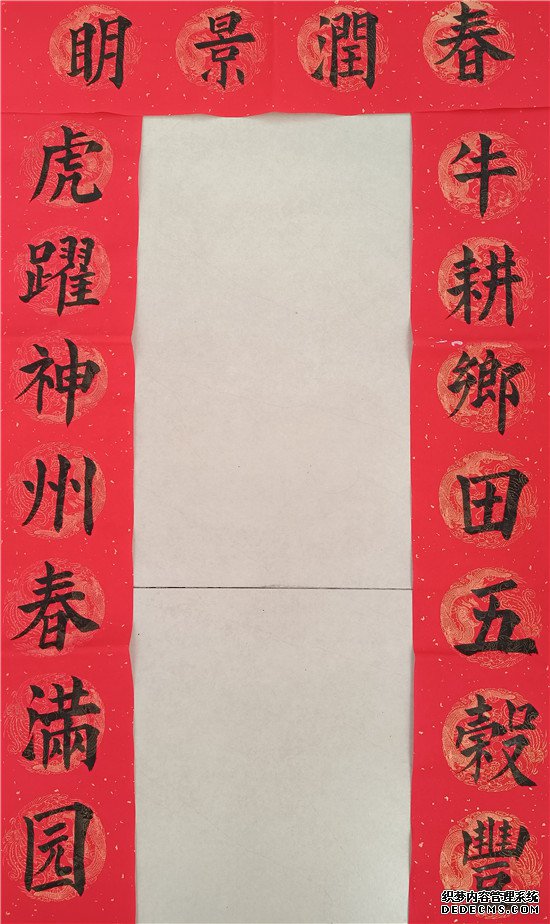 春潤景明
牛耕鄉田五穀豐
虎躍神州春滿园
织梦内容管理系统
DEDECMS.COM